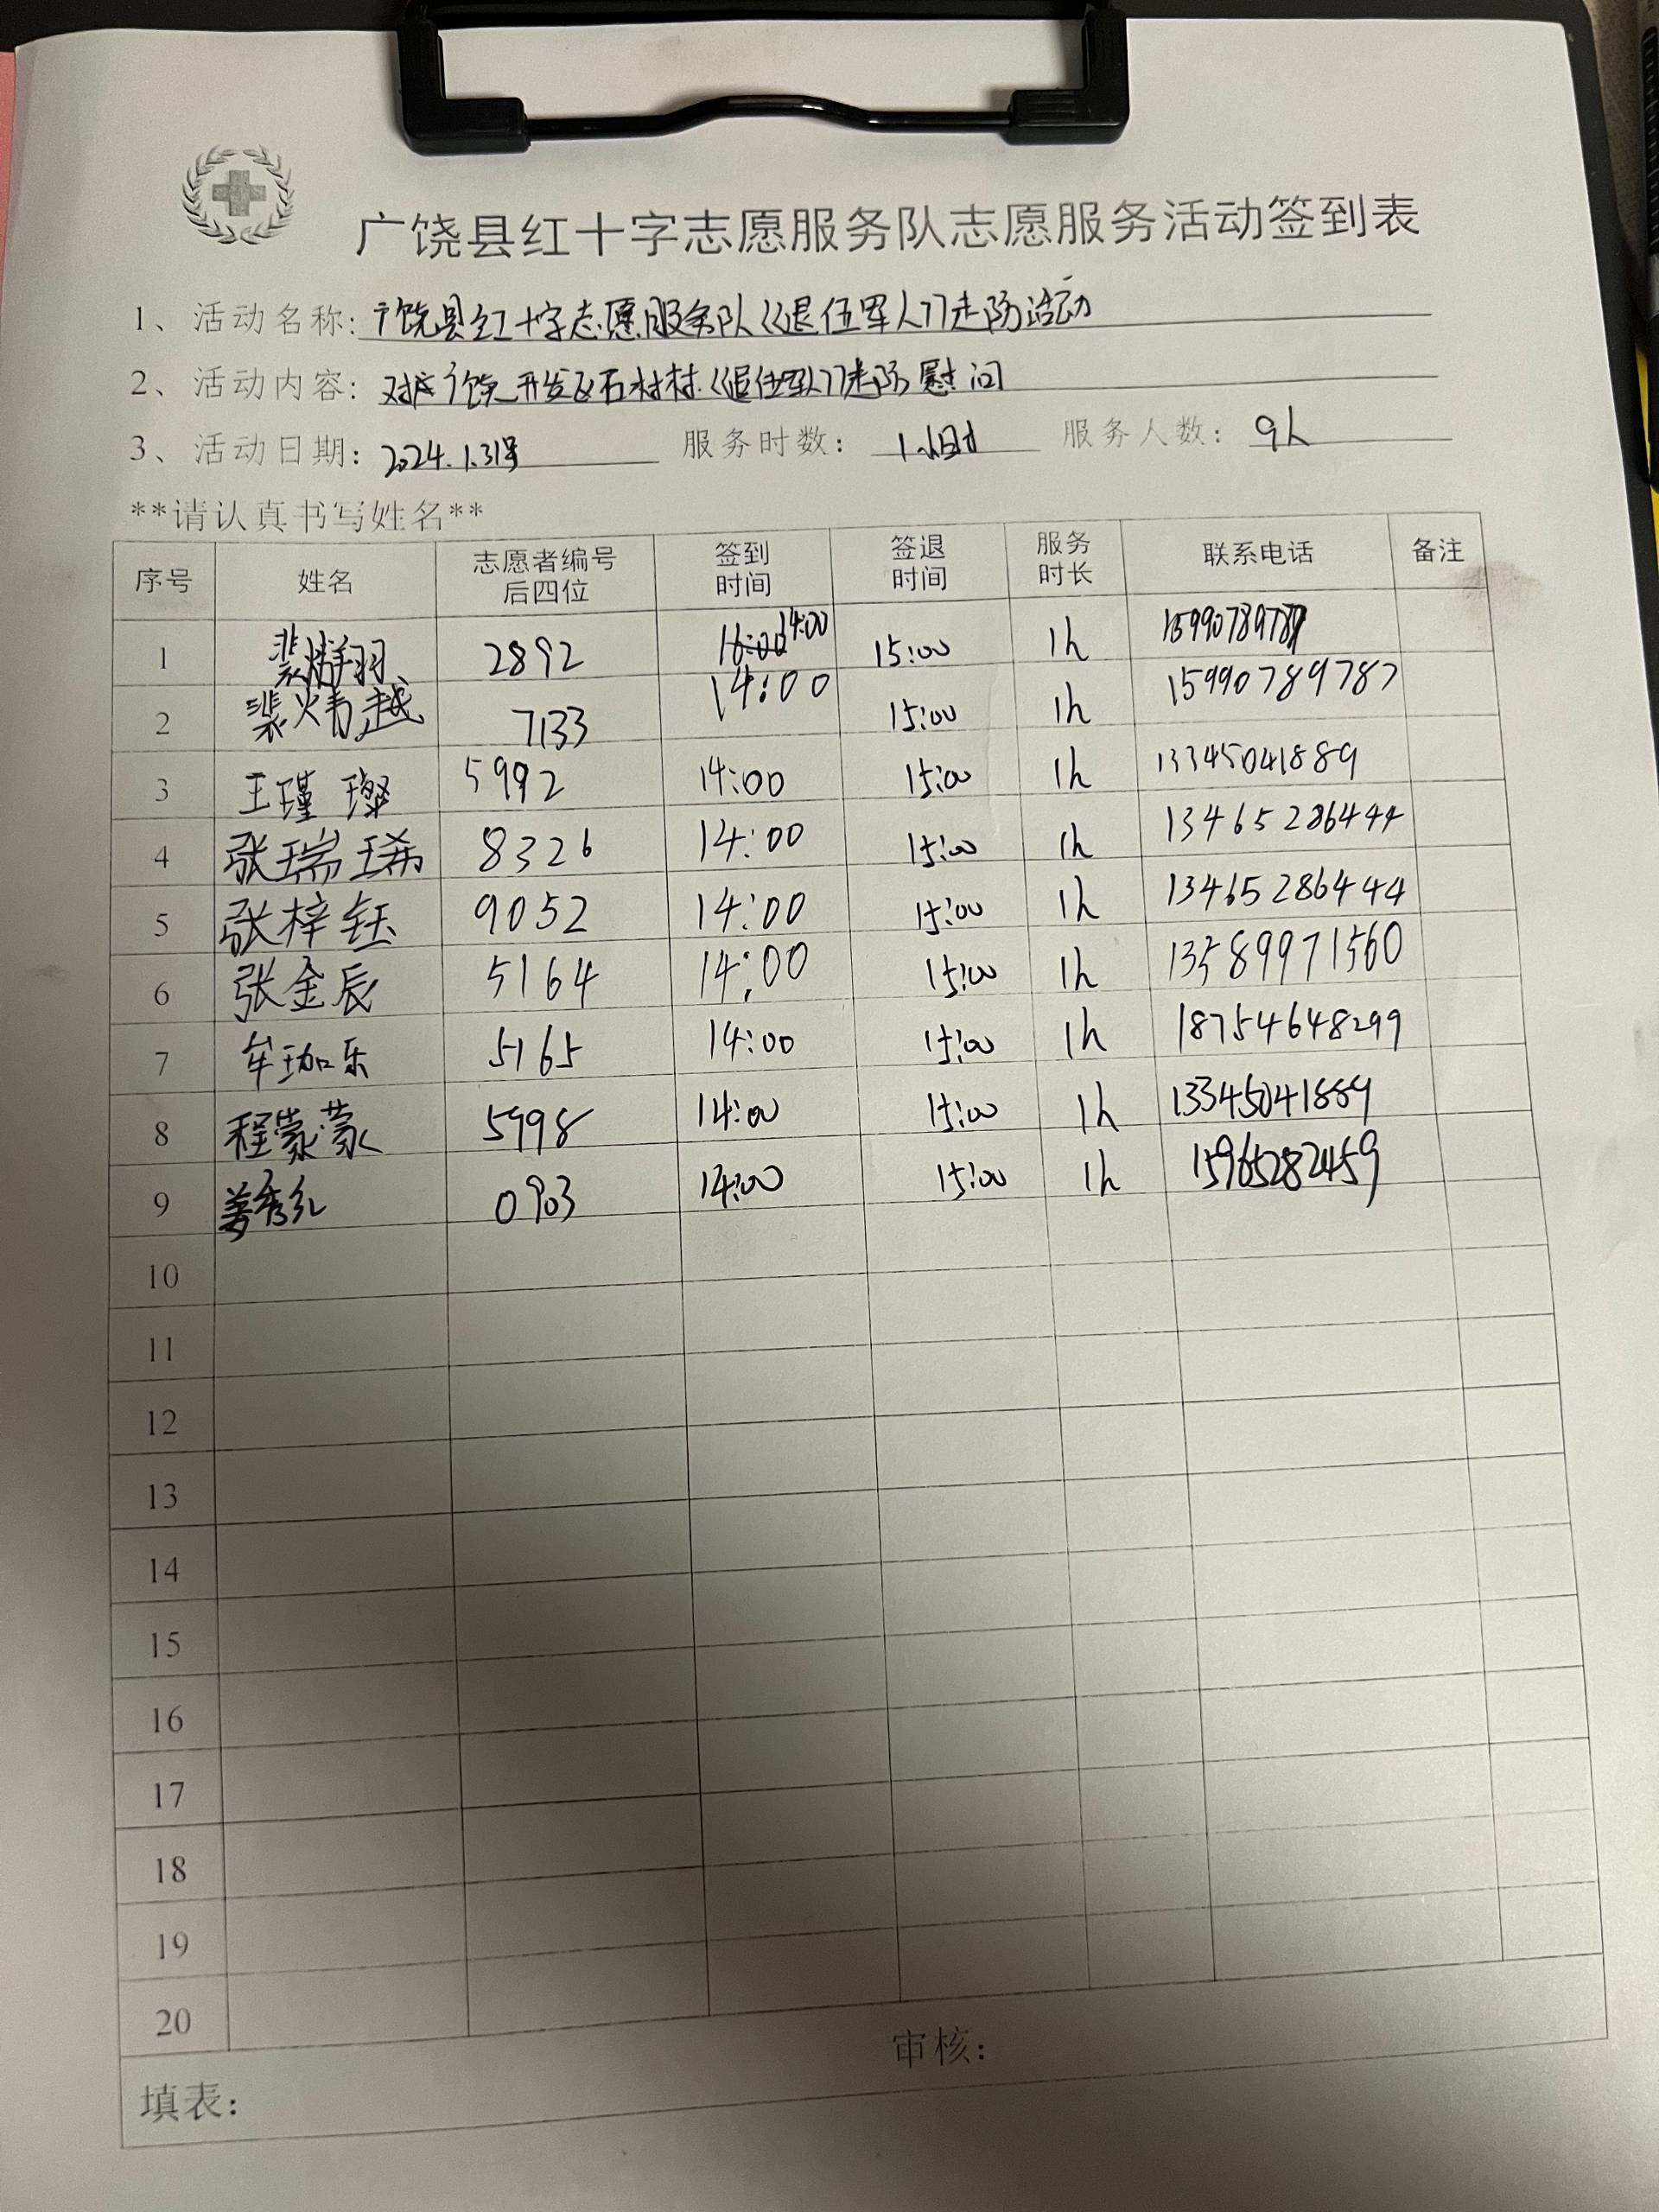 广饶县红十字志愿服务队志愿服务活动签到表
1、活动名称: 广饶县红十字志愿服务队《退伍军人》走访活动
2、活动内容: 广饶开发区石村村《退伍军人》走访慰问
3、活动日期: 2024.1.31号 服务时数: 1小时 服务人数: 9人
**请认真书写姓名**
序号 姓名 志愿者编号后四位 签到时间 签退时间 服务时长 联系电话 备注
1 裴 翔 2892 16:00 14:00 15:00 1h
2 裴炜越 7133 14:00 15:00 1h 15990789787
3 王瑾璨 5992 14:00 15:00 1h 13345041889
4 张瑞琋 8326 14:00 15:00 1h 13465286444
5 张梓钰 9052 14:00 15:00 1h 13465286444
6 张金辰 5164 14:00 15:00 1h 13589971560
7 牟珈乐 5165 14:00 15:00 1h 18754648299
8 程蒙蒙 5998 14:00 15:00 1h 13345041889
9 姜秀红 0903 14:00 15:00 1h 15965282459
10
11
12
13
14
15
16
17
18
19
20
填表: 审核: